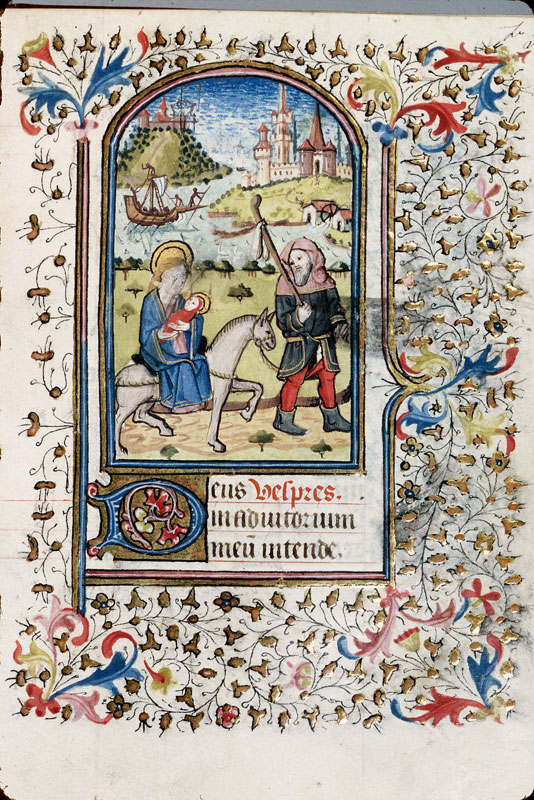 Deus Vespres.
in adiutorium
meū intende.